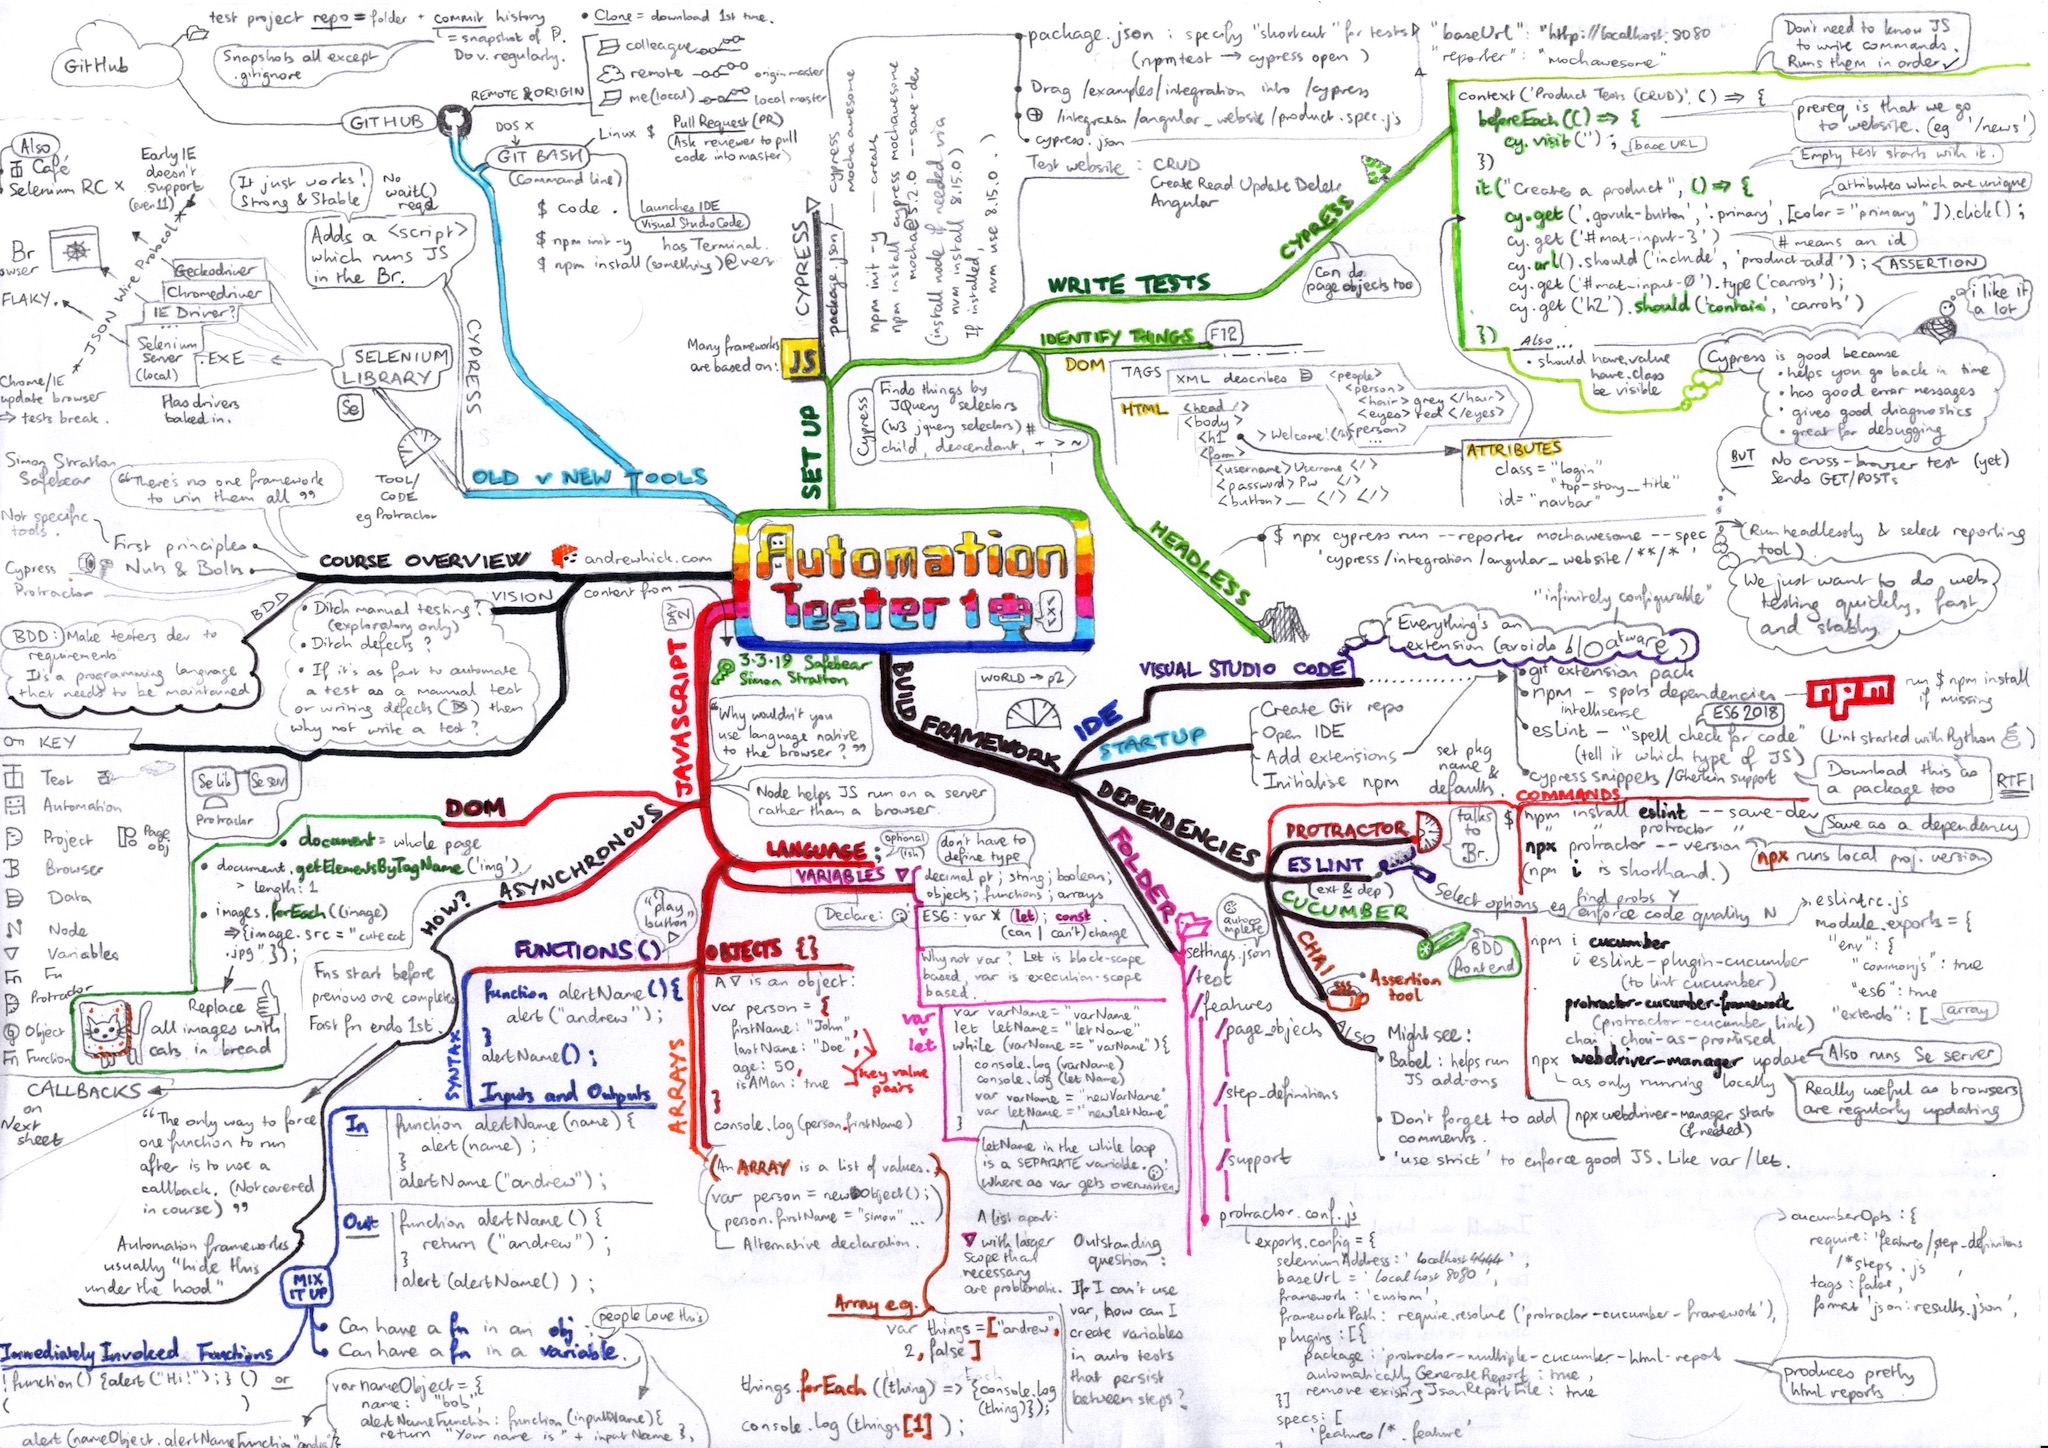 GitHub
test project repo = folder + commit history
= snapshot of P.
Do v. regularly.
Snapshots all except
.gitignore
• Clone = download 1st time.
colleague
remote
origin master
me (local)
local master
REMOTE & ORIGIN
GITHUB
DOS X
Linux $
Pull Request (PR)
(Ask reviewer to pull
code into master)
GIT BASH
(Command line)
$ code .
Launches IDE
Visual Studio Code
$ npm init -y
has Terminal.
$ npm install (something)@vers
Also
Café
Selenium RC x
Early IE
doesn't
support
(even 11)
JSON Wire Protocol
It just works!
Strong & Stable
No
wait()
reqd
Adds a <script>
which runs JS
in the Br.
Browser
FLAKY.
Geckodriver
Chromedriver
IE Driver?
Selenium
Server
(local)
.EXE
Has drivers
baked in.
Chrome/IE
update browser
⇒ tests break.
SELENIUM
LIBRARY
Se
CYPRESS
TOOL/
CODE
eg Protractor
OLD v NEW TOOLS
Simon Stratton
Safebear
"There's no one framework
to win them all"
Not specific
tools.
First principles
Nuts & Bolts
Cypress
Protractor
COURSE OVERVIEW
andrewhick.com
content from
BDD
VISION
BDD: Make testers dev to
requirements
It's a programming language
that needs to be maintained
• Ditch manual testing?
(exploratory only)
• Ditch defects?
• If it's as fast to automate
a test as a manual test
or writing defects then
why not write a test?
Automation
Tester 1
DAY
2
3.3.19 Safebear
Simon Stratton
SET UP
Many frameworks
are based on:
JS
CYPRESS
package.json
cypress
mochawesome
npm init -y — creates
npm install cypress mochawesome
mocha@5.2.0 --save-dev
(install node if needed via
nvm install 8.15.0)
If installed,
nvm use 8.15.0.)
• package.json : specify "shortcut" for tests
(npm test → cypress open)
• Drag /examples/integration into /cypress
/integration/angular_website/product.spec.js
• cypress.json
"baseUrl": "http://localhost:8080
"reporter": "mochawesome"
Test website: CRUD
Create Read Update Delete
Angular
WRITE TESTS
CYPRESS
Can do
page objects too
Don't need to know JS
to write commands.
Runs them in order ✓
context('Product Tests (CRUD)', () => {
beforeEach(() => {
cy.visit('');
base URL
})
prereq is that we go
to website. (eg '/news')
Empty test starts with it.
it("Creates a product", () => {
attributes which are unique
cy.get('.govuk-button', '.primary', [color="primary"]).click();
cy.get('#mat-input-3')
# means an id
cy.url().should('include', 'product-add');
ASSERTION
cy.get('#mat-input-0').type('carrots');
cy.get('h2').should('contain', 'carrots')
})
Also...
• should have.value
have.class
be visible
i like it
a lot
Cypress is good because
• helps you go back in time
• has good error messages
• gives good diagnostics
• great for debugging
BUT No cross-browser test (yet)
Sends GET/POSTs
IDENTIFY THINGS
F12
Cypress
Finds things by
JQuery selectors
(W3 jquery selectors) #
child, descendant, + > ~
DOM
TAGS
XML describes
<people>
<person>
<hair> grey </hair>
<eyes> red </eyes>
<person>
...
HTML
<head/>
<body>
<h1
> Welcome!
<form>
<username> Username </>
<password> Pw </>
<button> __ </> </>
ATTRIBUTES
class = "login"
"top-story__title"
id = "navbar"
HEADLESS
$ npx cypress run --reporter mochawesome --spec
'cypress/integration/angular_website/**/*'
(Run headlessly & select reporting
tool)
We just want to do web
testing quickly, fast
and stably.
BUILD FRAMEWORK
WORLD → p2
IDE
VISUAL STUDIO CODE
"infinitely configurable"
Everything's an
extension (avoids bloatware)
• git extension pack
• npm - spots dependencies
intellisense
npm
run $ npm install
if missing
• eslint - "spell check for code"
ES6 2018
(tell it which type of JS)
(Lint started with Python)
• cypress snippets / Gherkin support
Download this as
a package too
RTFI
STARTUP
Create Git repo
Open IDE
Add extensions
Initialise npm
set pkg
name &
defaults.
DEPENDENCIES
PROTRACTOR
talks
to
Br.
COMMANDS
$ npm install eslint --save-dev
" " protractor "
Save as a dependency
npx protractor --version
npx runs local proj. version
(npm i is shorthand.)
ESLINT
(ext & dep)
Select options eg find probs Y
enforce code quality N
→ eslintrc.js
module.exports = {
"env": {
"commonjs": true
"es6": true
"extends": [
array
CUCUMBER
BDD
frontend
npm i cucumber
i eslint-plugin-cucumber
(to lint cucumber)
protractor-cucumber-framework
(protractor-cucumber link)
chai ; chai-as-promised
npx webdriver-manager update
Also runs Se server
as only running locally
Really useful as browsers
are regularly updating
npx webdriver-manager start
(if needed)
CHAI
Assertion
tool
ALSO
Might see:
• Babel: helps run
JS add-ons
• Don't forget to add
comments.
• 'use strict' to enforce good JS. Like var/let.
FOLDER
autocomplete
settings.json
/test
/features
/page_objects
/step-definitions
/support
protractor.conf.js
exports.config = {
seleniumAddress: 'localhost 4444',
baseUrl = 'localhost 8080',
framework: 'custom',
frameworkPath: require.resolve('protractor-cucumber-framework'),
plugins: [{
package: 'protractor-multiple-cucumber-html-report
automaticallyGenerateReport: true,
removeExistingJsonReportFile: true
}]
specs: [
'features/*.feature'
cucumberOpts: {
require: 'features/step-definitions
/*steps.js',
tags: false,
format 'json:results.json',
produces pretty
html reports
KEY
Test
Automation
Project
Page
obj
Browser
Data
Node
Variables
Fn
Protractor
Object
Function
Se lib
Se serv
Protractor
JAVASCRIPT
"Why wouldn't you
use language native
to the browser?"
Node helps JS run on a server
rather than a browser.
DOM
• document = whole page
• document.getElementsByTagName('img')
> length: 1
• images.forEach((image)
⇒ {image.src = "cutecat
.jpg"});
Replace
all images with
cats in bread
ASYNCHRONOUS
HOW?
Fns start before
previous one completes
Fast fn ends 1st.
CALLBACKS
on
Next
sheet
"The only way to force
one function to run
after is to use a
callback. (Not covered
in course)"
Automation frameworks
usually "hide this
under the hood"
LANGUAGE
;
optional
(ish)
don't have to
define type
VARIABLES
decimal pt; string; boolean;
objects; functions; arrays
Declare:
ES6: var X (let; const.
(can | can't) change
Why not var? Let is block-scope
based, var is execution-scope
based.
var
v
let
var varName = "varName"
let letName = "letName"
while (varName == "varName"){
console.log(varName)
console.log(letName)
var varName = "newVarName"
var letName = "newletName"
}
letName in the while loop
is a SEPARATE variable.
Whereas var gets overwritten.
A list apart:
with larger
scope than
necessary
are problematic.
Outstanding
question:
If I can't use
var, how can I
create variables
in auto tests
that persist
between steps?
FUNCTIONS()
"play
button"
SYNTAX
function alertName(){
alert("andrew");
}
alertName();
Inputs and Outputs
In
function alertName(name){
alert(name);
}
alertName("andrew");
Out
function alertName(){
return ("andrew");
}
alert(alertName());
MIX
IT UP
• Can have a fn in an obj;
• Can have a fn in a variable.
people love this
Immediately Invoked Functions
!function() {alert("Hi!");}() or
( )
var nameObject = {
name: "bob",
alertNameFunction: function(inputName){
return "Your name is " + inputName },
alert(nameObject.alertNameFunction
OBJECTS {}
A ▽ is an object:
var person = {
firstName: "John",
lastName: "Doe",
age: 50,
isAMan: true
}
key value
pairs
console.log(person.firstName)
ARRAYS
(An ARRAY is a list of values.)
var person = new Object();
person.firstName = "simon"...
Alternative declaration.
Array e.g.
var things = ["andrew",
2, false]
things.forEach((thing) => {console.log
(thing)});
console.log(things[1]);